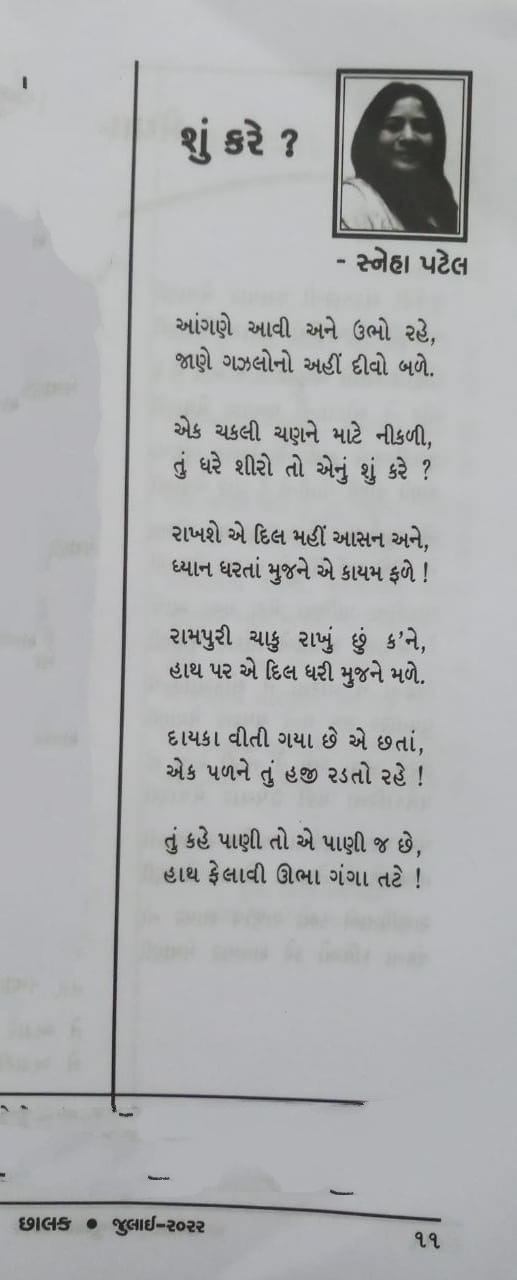 શું કરે ?
- સ્નેહા પટેલ
આંગણે આવી અને ઉભો રહે,
જાણે ગઝલોનો અહીં દીવો બળે.
એક ચકલી ચણને માટે નીકળી,
તું ધરે શીરો તો એનું શું કરે ?
રાખશે એ દિલ મહીં આસન અને,
ધ્યાન ધરતાં મુજને એ કાયમ ફળે !
રામપુરી ચાકુ રાખું છું ક'ને,
હાથ પર એ દિલ ધરી મુજને મળે.
દાયકા વીતી ગયા છે એ છતાં,
એક પળને તું હજી રડતો રહે !
તું કહે પાણી તો એ પાણી જ છે,
હાથ ફેલાવી ઊભા ગંગા તટે !
છાલક • જુલાઈ-૨૦૨૨
૧૧